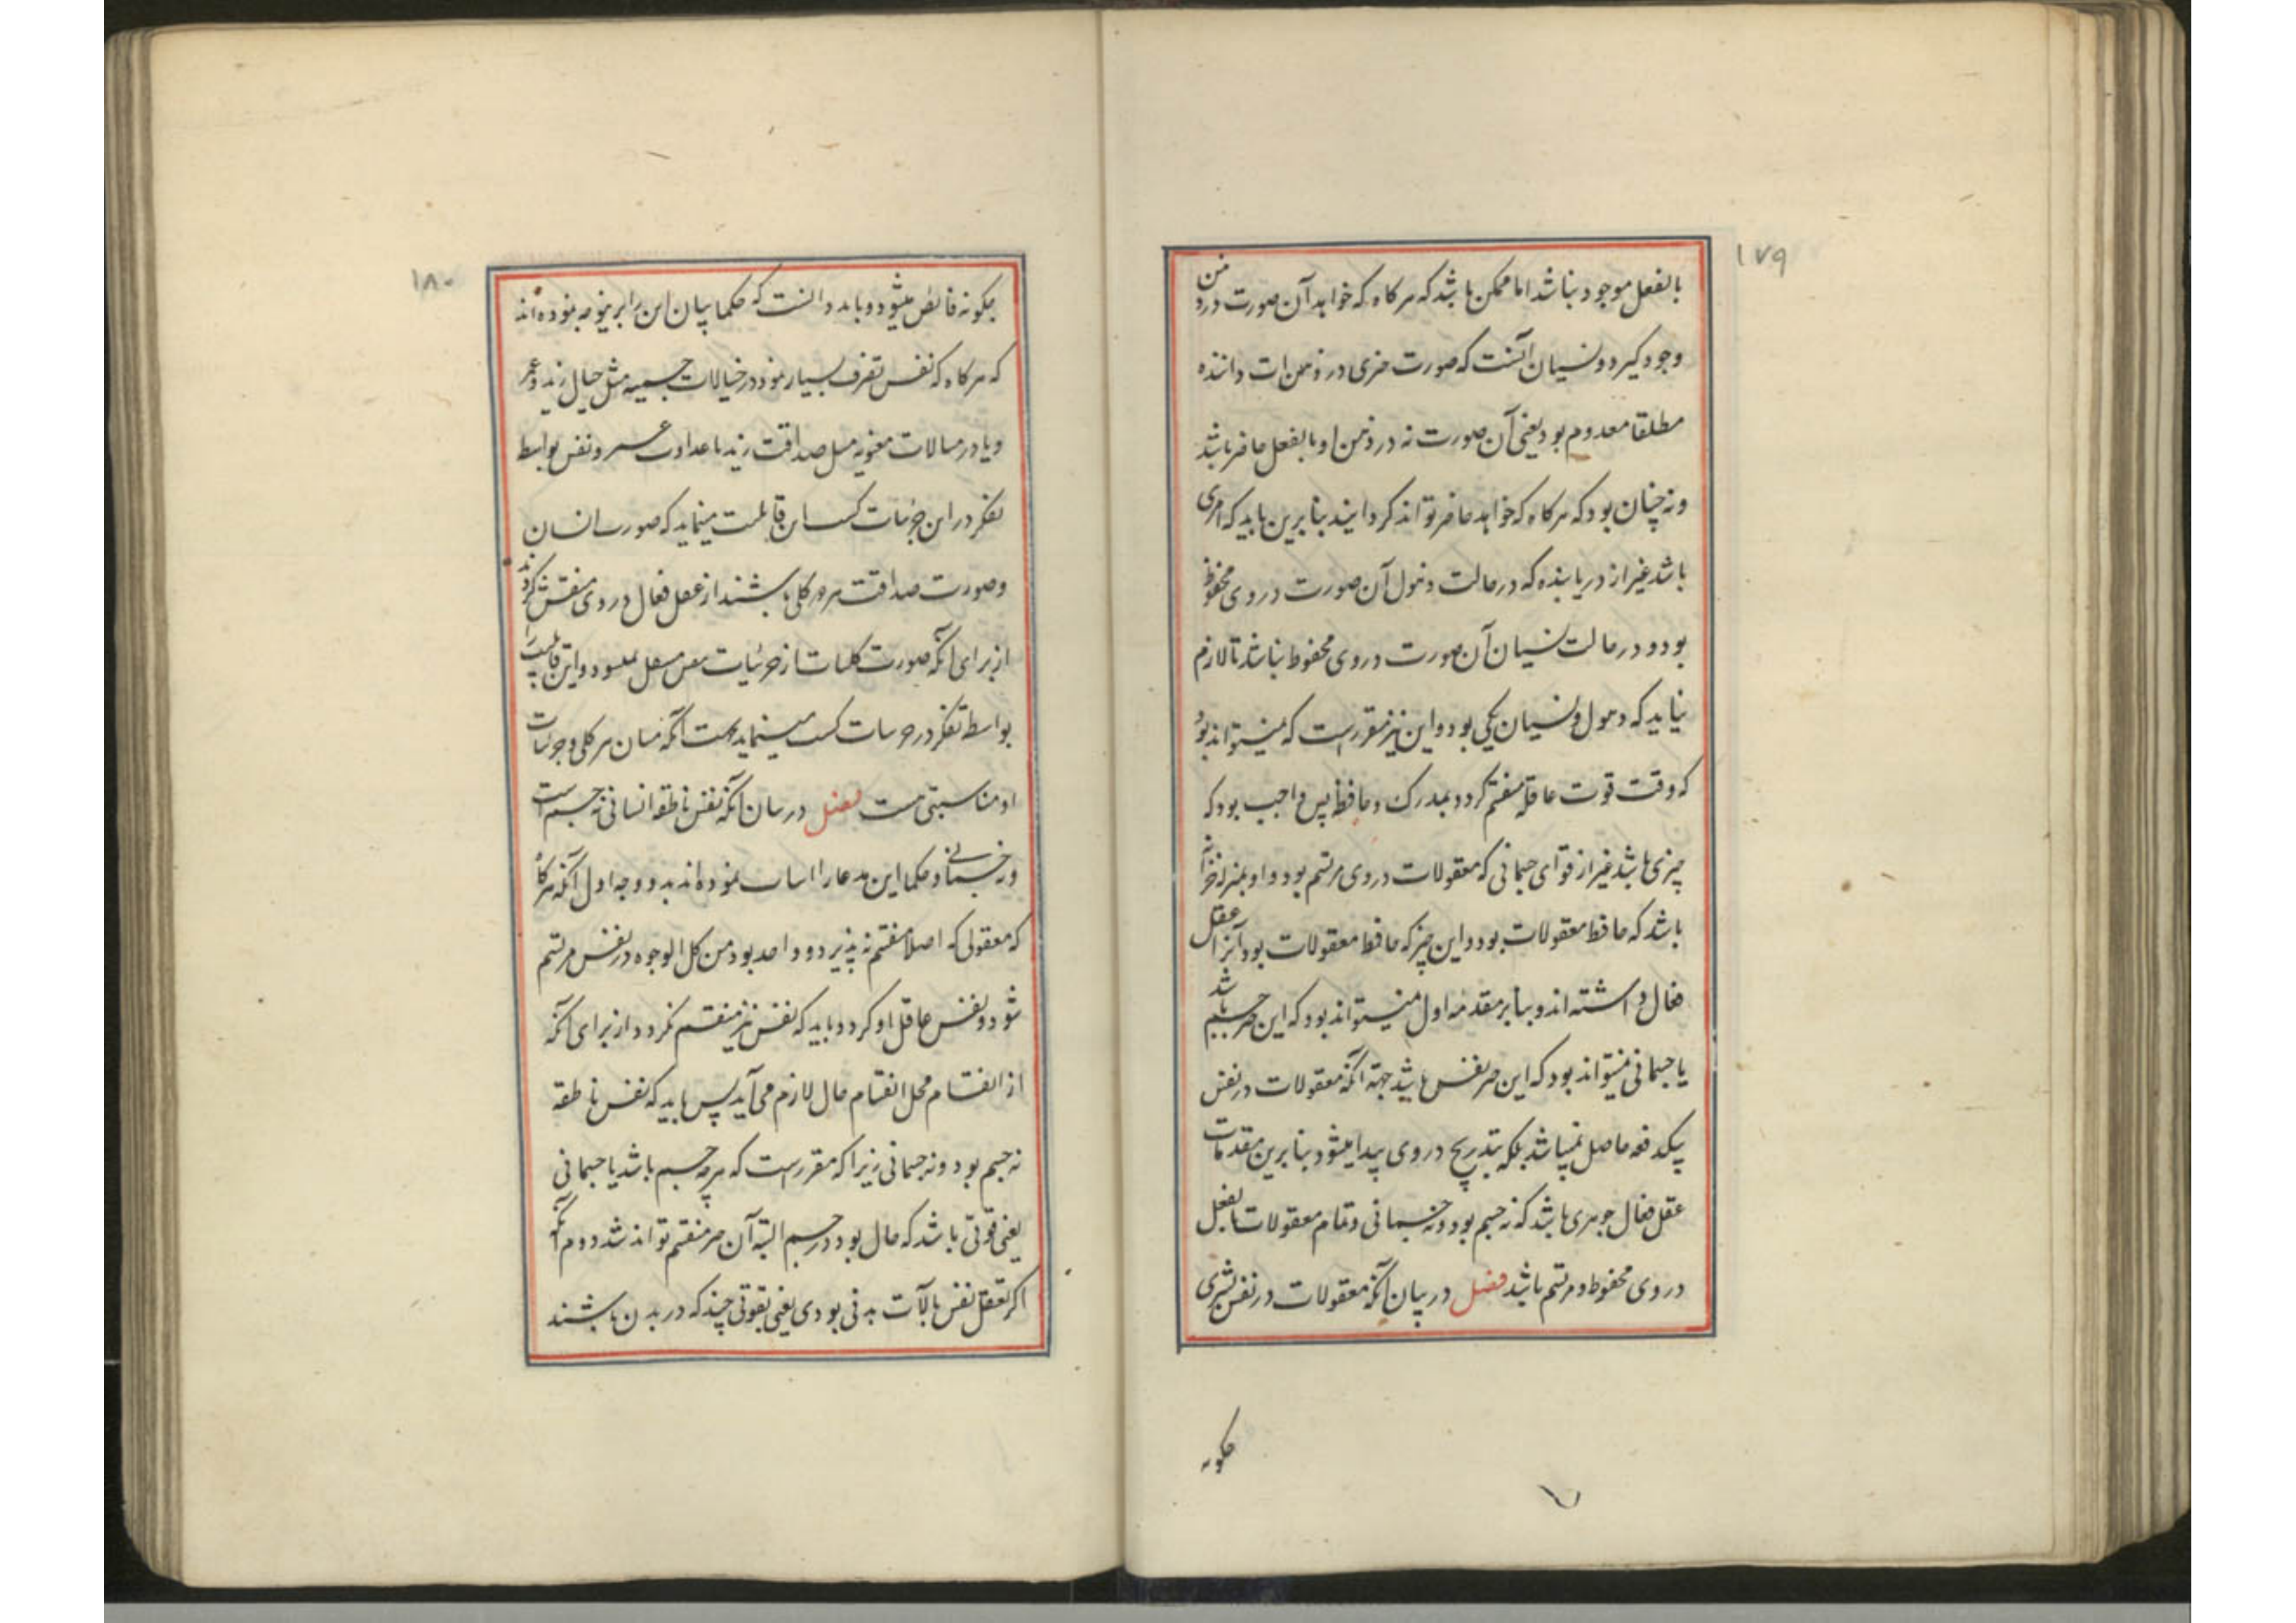 ۱۷۹
بالفعل موجود نباشد اما ممکن باشد که هرکاه که خواهد آن صورت در ذهن
وجود کیرد و نسیان آنست که صورت چیزی در ذهن ذات داننده
مطلقا معدوم بود یعنی آن صورت نه در ذهن او بالفعل حاضر باشد
و نه چنان بود که هرکاه که خواهد حاضر تواند کردانید بنابرین باید که امری
باشد غیر از دریابنده که در حالت ذهول آن صورت در وی محفوظ
بود و در حالت نسیان آن صورت در وی محفوظ نباشد تا لازم
نیاید که ذهول و نسیان یکی بود و این نیز مقررست که نمیتواند بود
که وقت قوت عاقله منقسم کردد بمدرک و حافظ پس واجب بود که
چیزی باشد غیر از قوای جسمانی که معقولات در وی مرتسم بود و او بمنزله خزانه
باشد که حافظ معقولات بود و این چیز که حافظ معقولات بود آنرا عقل
فعال داشته اند و بنابر مقدمه اول نمیتواند بود که این چیز جسم باشد
یا جسمانی نمیتواند بود که این چیز نفس باشد جهة آنکه معقولات در نفس
بیکدفعه حاصل نمیباشد بلکه بتدریج در وی پیدا میشود بنابرین مقدمات
عقل فعال جوهری باشد که نه جسم بود و نه جسمانی و تمام معقولات بالفعل
در وی محفوظ و مرتسم باشد فصل در بیان آنکه معقولات در نفس بشری
چکونه
۱۸۰
چکونه فائض میشود و باید دانست که حکما بیان این را برینوجه نموده اند
که هرکاه که نفس تصرف بسیار نمود در خیالات جسمیه مثل خیال زید و عمر
و یا در مثالات معنویه مثل صداقت زید یا عداوت عمرو نفس بواسطه
تفکر در این جزئیات کسب این قابلیت مینماید که صورت انسان
و صورت صداقت هر دو کلی باشند از عقل فعال در وی منقش کردند
از برای آنکه صورت کلیات از جزئیات بنفس منتقل نمیشود و این قابلیت را
بواسطه تفکر در جزئیات کسب مینماید بجهت آنکه میان هر کلی و جزئیات
او مناسبتی هست فصل در بیان آنکه نفس ناطقه انسانی نه جسم است
و نه جسمانی و حکما این مدعا را اثبات نموده اند بدو وجه اول آنکه هرکاه
که معقولی که اصلا منقسم نپذیرد و واحد بود من کل الوجوه در نفس مرتسم
شود و نفس عاقل او کردد باید که نفس نیز منقسم نکردد از برای آنکه
از انقسام محل انقسام حال لازم می آید پس باید که نفس ناطقه
نه جسم بود و نه جسمانی زیرا که مقررست که هرچه جسم باشد یا جسمانی
یعنی قوتی باشد که حال بود در جسم البته آن چیز منقسم تواند شد دوم آنکه
اکر تعقل نفس بآلات بدنی بودی یعنی بقوتی چند که در بدن باشند